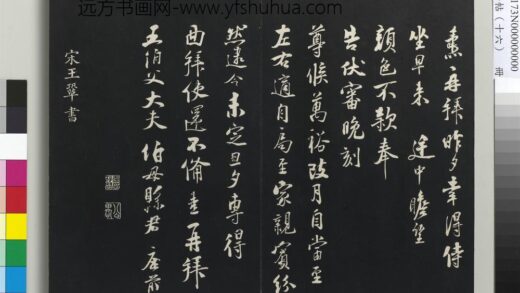 远方书画网-www.yfshuhua.com
再拜昨夕幸得侍
坐早来 途中瞻望
顏色不款奉
告伏審晚刻
尊候萬裕改月自當至
左右適自局至家親賓紛
然遠今未定旦夕專得
曲拜使還不備 再拜
五伯父大夫 伯母縣君 座前
宋王鞏書
173N000000000
帖（十六）